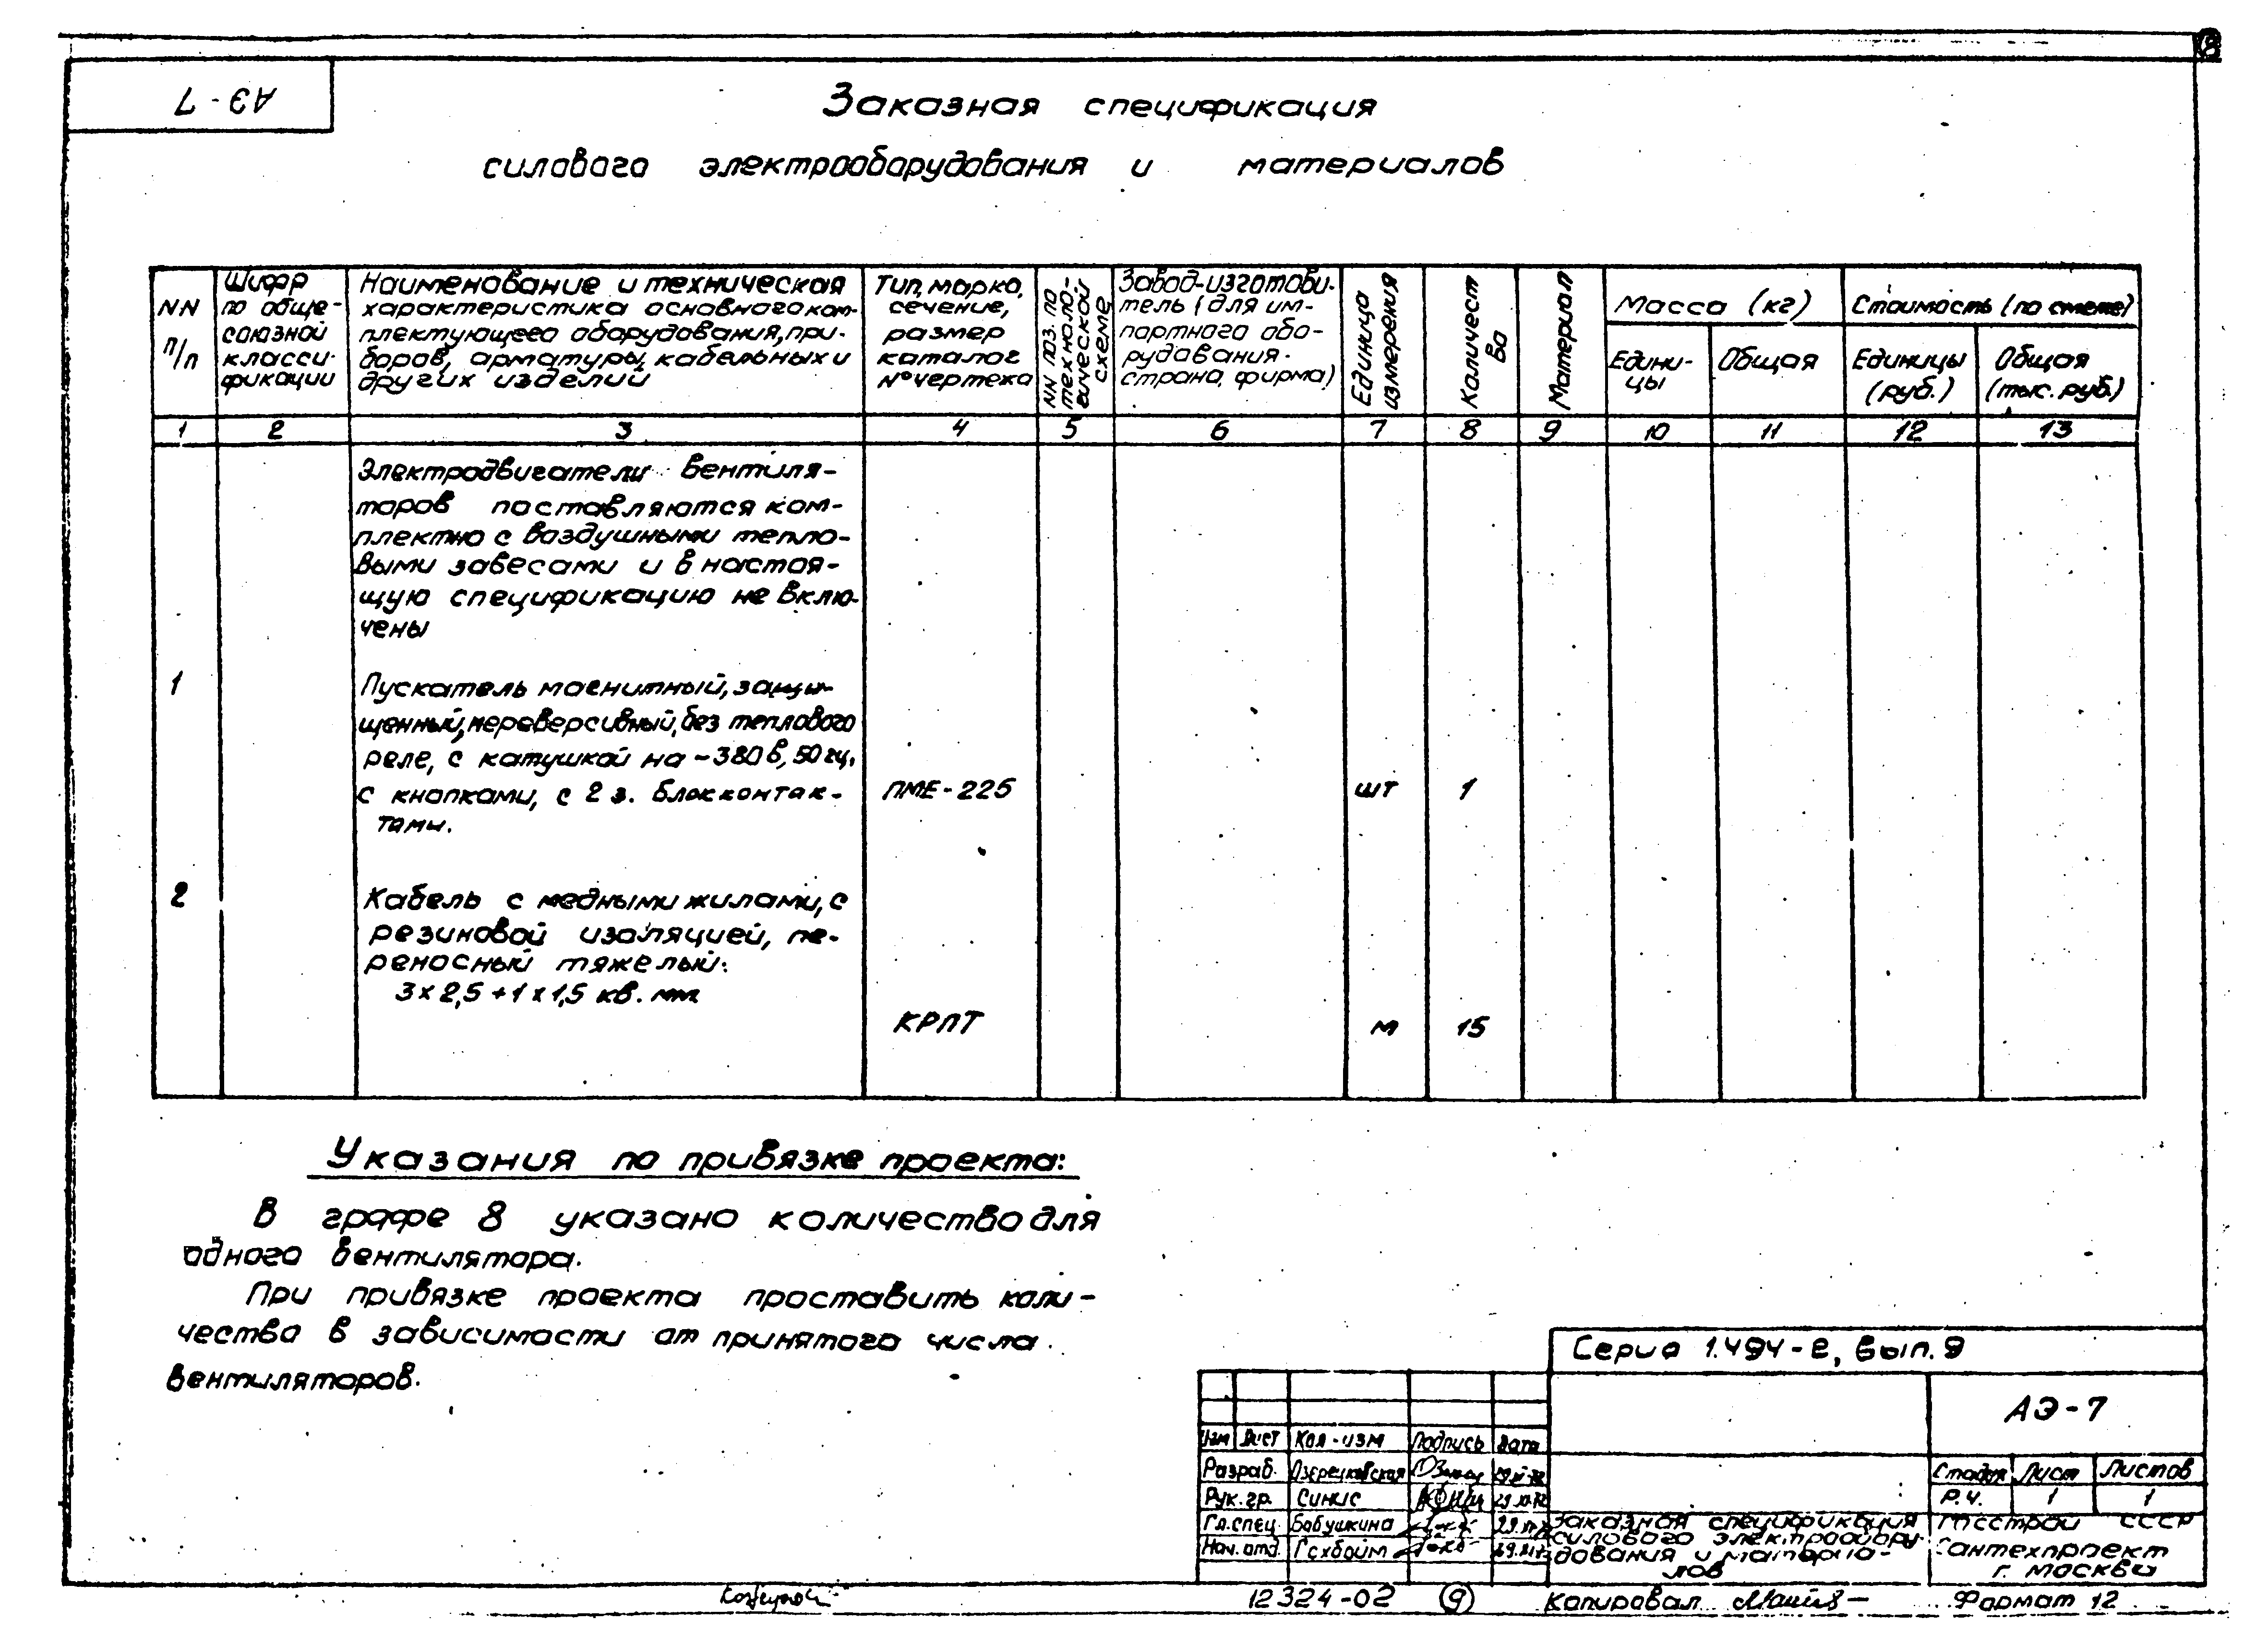 8
АЭ-7
Заказная спецификация
силового электрооборудования и материалов
NN п/п
Шифр по обще-союзной класси-фикации
Наименование и техническая
характеристика основного ком-
плектующего оборудования, при-
боров, арматуры, кабельных и
других изделий
Тип, марка,
сечение,
размер
каталог
N° чертежа
NN поз. по
техноло-
гической
схеме
Завод-изготови-
тель (для им-
портного обо-
рудования-
страна, фирма)
Единица
измерения
Количест
во
Материал
Масса (кг)
Едини-
цы
Общая
Стоимость (по смете)
Единицы
(руб.)
Общая
(тыс. руб.)
1 2 3 4 5 6 7 8 9 10 11 12 13
Электродвигатели вентиля-
торов поставляются ком-
плектно с воздушными тепло-
выми завесами и в настоя-
щую спецификацию не вклю-
чены
1 Пускатель магнитный, защи-
щенный, нереверсивный, без теплового
реле, с катушкой на ~380в, 50гц,
с кнопками, с 2 з. блокконтак- ПМЕ-225 шт 1
тами.
2 Кабель с медными жилами, с
резиновой изоляцией, пе-
реносный тяжелый:
3х2,5+1х1,5 кв. мм
КРПТ м 15
Указания по привязке проекта:
В графе 8 указано количество для
одного вентилятора.
При привязке проекта проставить коли-
чества в зависимости от принятого числа
вентиляторов.
Серия 1.494-2, вып. 9
АЭ-7
Изм Лист Кол-изм Подпись Дата
Разраб. Озерецковская
Рук. гр. Синис
Гл. спец. Бабушкина
Нач. отд. Гохбойм
Стадия Лист Листов
Р.Ч. 1 1
Заказная спецификация
силового электрообору-
дования и материа-
лов
Госстрой СССР
Сантехпроект
г. Москва
12324-02 9 Копировал Формат 12